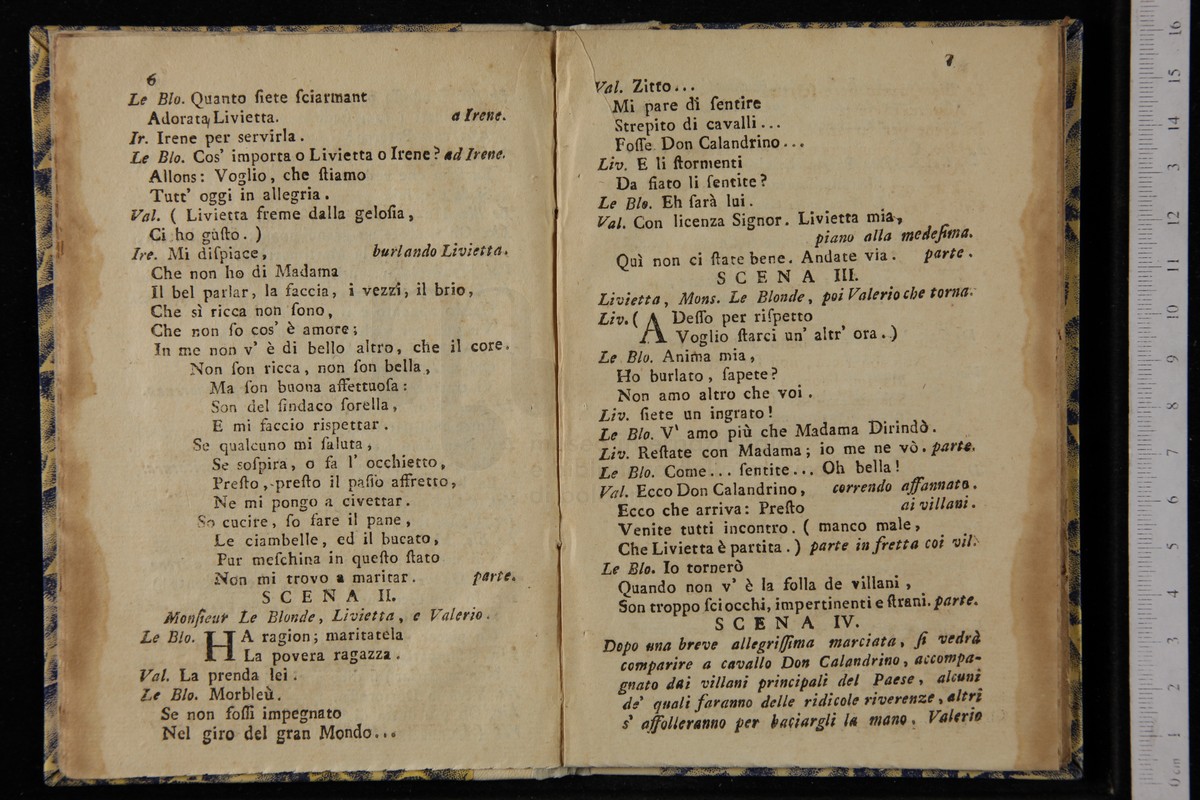 6
Le Blo. Quanto ſiete ſciarmant
Adorata Livietta. a Irene.
Ir. Irene per servirla.
Le Blo. Cos' importa o Livietta o Irene? ad Irene.
Allons: Voglio, che ſtiamo
Tutt' oggi in allegria.
Val. ( Livietta freme dalla geloſia,
Ci ho guſto. )
Ire. Mi diſpiace, burlando Livietta.
Che non ho di Madama
Il bel parlar, la faccia, i vezzi, il brio,
Che sì ricca non ſono,
Che non ſo cos' è amore;
In me non v' è di bello altro, che il core.
Non ſon ricca, non ſon bella,
Ma ſon buona affettuoſa:
Son del ſindaco ſorella,
E mi faccio rispettar.
Se qualcuno mi ſaluta,
Se soſpira, o fa l' occhietto,
Preſto, preſto il paſſo affretto,
Ne mi pongo a civettar.
So cucire, ſo fare il pane,
Le ciambelle, ed il bucato,
Pur meſchina in queſto ſtato
Non mi trovo a maritar. parte.
SCENA II.
Monſieur Le Blonde, Livietta, e Valerio.
Le Blo. HA ragion; maritatela
La povera ragazza.
Val. La prenda lei.
Le Blo. Morbleù.
Se non foſſi impegnato
Nel giro del gran Mondo...
7
Val. Zitto...
Mi pare di ſentire
Strepito di cavalli...
Foſſe Don Calandrino...
Liv. E li ſtormenti
Da fiato li ſentite?
Le Blo. Eh ſarà lui.
Val. Con licenza Signor. Livietta mia,
piano alla medeſima.
Quì non ci ſtate bene. Andate via. parte.
SCENA III.
Livietta, Mons. Le Blonde, poi Valerio che torna.
Liv. ( ADeſſo per riſpetto
Voglio ſtarci un' altr' ora. )
Le Blo. Anima mia,
Ho burlato, ſapete?
Non amo altro che voi.
Liv. ſiete un ingrato!
Le Blo. V' amo più che Madama Dirindò.
Liv. Reſtate con Madama; io me ne vò. parte.
Le Blo. Come... ſentite... Oh bella!
Val. Ecco Don Calandrino, correndo affannato.
Ecco che arriva: Preſto ai villani.
Venite tutti incontro. ( manco male,
Che Livietta è partita. ) parte in fretta coi vil.
Le Blo. Io tornerò
Quando non v' è la folla de villani,
Son troppo ſciocchi, impertinenti e ſtrani. parte.
SCENA IV.
Dopo una breve allegriſſima marciata, ſi vedrà
comparire a cavallo Don Calandrino, accompa-
gnato dai villani principali del Paese, alcuni
de' quali faranno delle ridicole riverenze, altri
s' affolleranno per baciargli la mano. Valerio